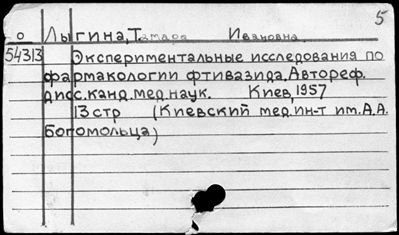 5
о Лыгина, Тамара Ивановна
54313 Экспериментальные исследования по
фармакологии фтивазида. Автореф.
дисс. канд. мед. наук. Киев, 1957
13 стр (Киевский мед. ин-т им. А.А.
Богомольца)